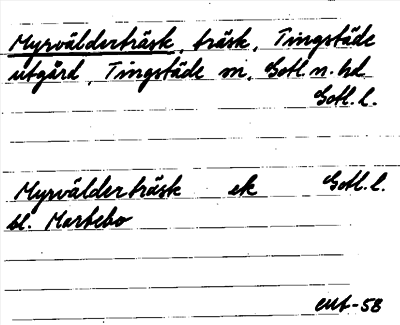 Myrvälderträsk, träsk, Tingstäde
utgård, Tingstäde sn, Gotl. n. hd
Gotl. l.
Myrvälderträsk ek Gotl. l.
bl. Martebo
ent-58